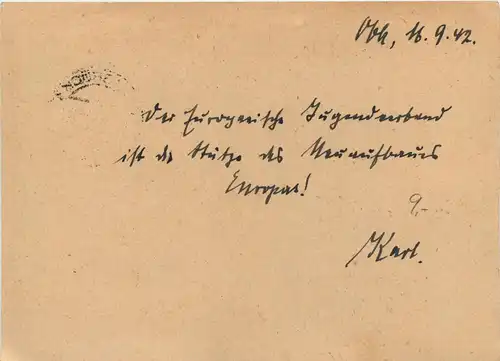 Obh, 16.9.42.
Der Europäische Jugendverband
ist die Stütze des Neuaufbaues
Europas!
9,-
Karl.